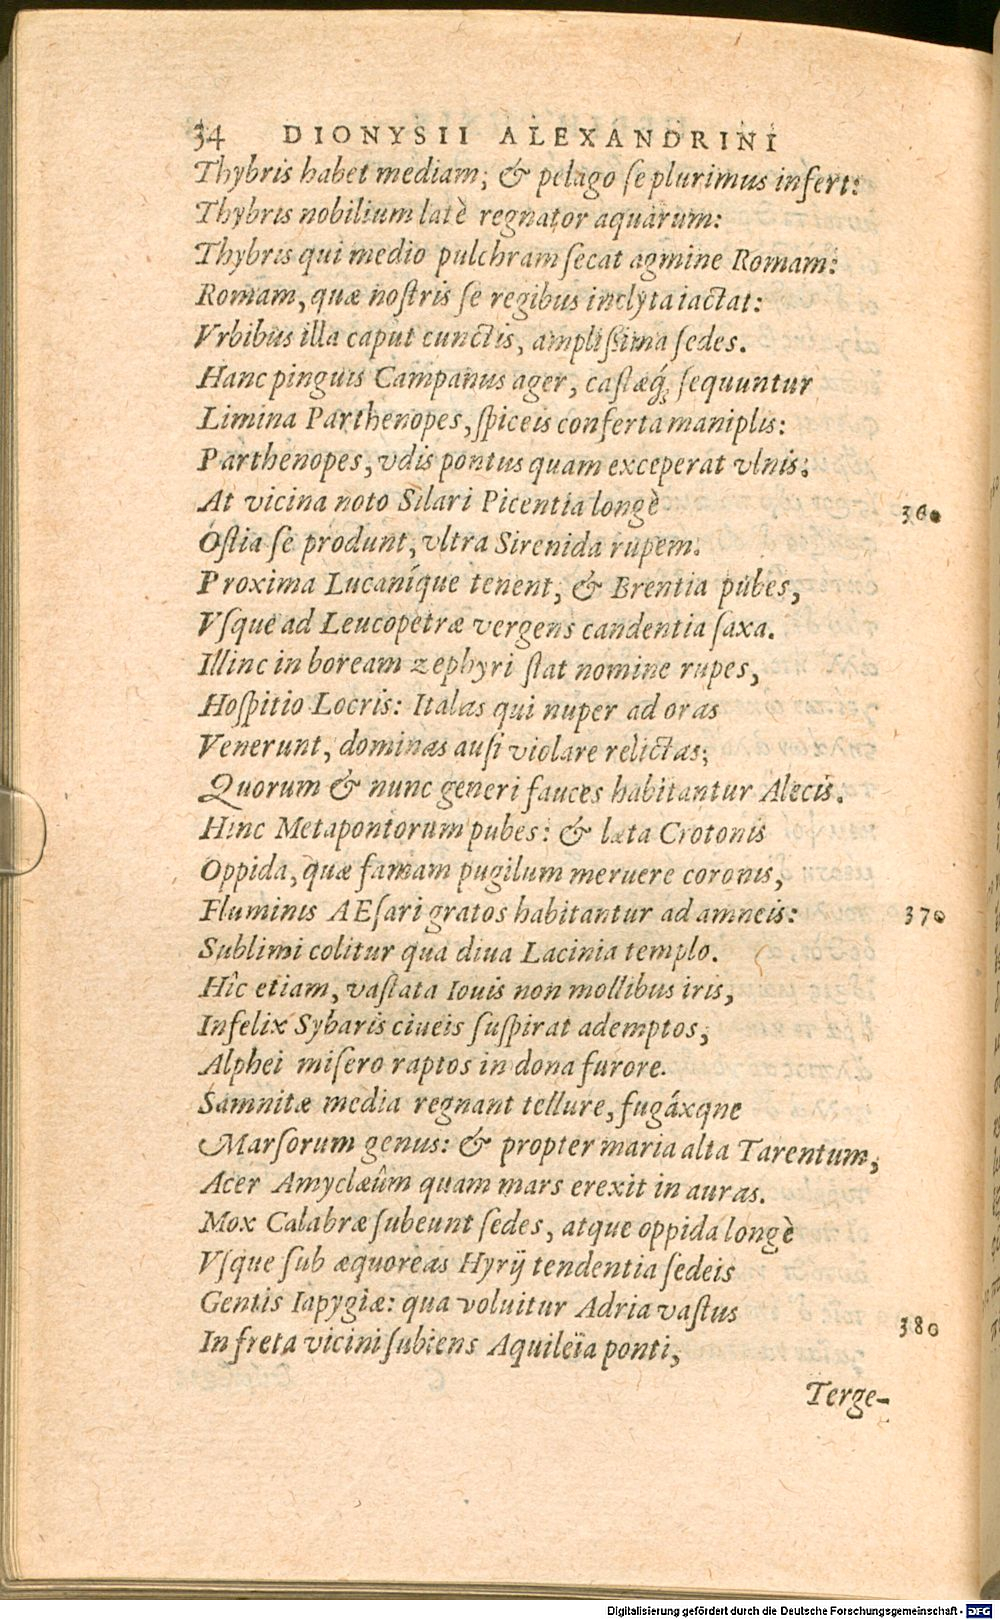 34 DIONYSII ALEXANDRINI
Thybris habet mediam; & pelago ſe plurimus infert:
Thybris nobilium latè regnator aquarum:
Thybris qui medio pulchram ſecat agmine Romam:
Romam, quæ noſtris ſe regibus inclyta iactat:
Vrbibus illa caput cunctis, ampliſsima ſedes.
Hanc pinguis Campanus ager, caſtæq́; ſequuntur
Limina Parthenopes, ſpiceis conferta maniplis:
Parthenopes, vdis pontus quam exceperat vlnis:
At vicina noto Silari Picentia longè 360
Oſtia ſe produnt, vltra Sirenida rupem.
Proxima Lucaníque tenent, & Brentia pubes,
Vſque ad Leucopetræ vergens candentia ſaxa.
Illinc in boream zephyri ſtat nomine rupes,
Hoſpitio Locris: Italas qui nuper ad oras
Venerunt, dominas auſi violare relictas;
Quorum & nunc generi fauces habitantur Alecis.
Hinc Metapontorum pubes: & læta Crotonis
Oppida, quæ famam pugilum meruere coronis,
Fluminis AEſari gratos habitantur ad amneis: 370
Sublimi colitur qua diua Lacinia templo.
Hîc etiam, vaſtata Iouis non mollibus iris,
Infelix Sybaris ciueis ſuſpirat ademptos,
Alphei miſero raptos in dona furore.
Samnitæ media regnant tellure, fugáxqne
Marſorum genus: & propter maria alta Tarentum,
Acer Amyclæûm quam mars erexit in auras.
Mox Calabræ ſubeunt ſedes, atque oppida longè
Vſque ſub æquoreas Hyrij tendentia ſedeis
Gentis Iapygiæ: qua voluitur Adria vaſtus 380
In freta vicini ſubiens Aquileïa ponti,
Terge-
Digitalisierung gefördert durch die Deutsche Forschungsgemeinschaft - DFG